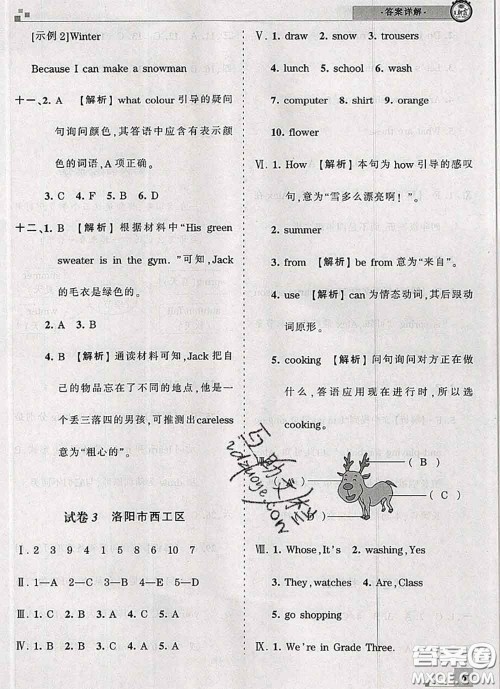 ·答案详解·
[示例2]Winter
Because I can make a snowman
十一、2. A 【解析】what colour 引导的疑问
句询问颜色,其答语中应含有表示颜
色的词语,A 项正确。
3. C 4. F 5. B 6. D
十二、1. B 【解析】根据材料中“His green
sweater is in the gym. ”可知,Jack
的毛衣是绿色的。
2. A 3. B
4. B 【解析】通读材料可知,Jack 把自
己的物品忘在了不同的地点,他是一
个丢三落四的男孩,可推测出careless
意为“粗心的”。
试卷 3 洛阳市西工区
Ⅰ. 2 9 4 3 1 5 8 6 10 7
Ⅱ. 1—A 2—D 3—B 4—E 5—C
Ⅲ. 1. B 2. C 3. A 4. A 5. C
Ⅳ. 1. B 2. C 3. B 4. A 5. A
Ⅴ. 1. door 2. and 3. snow 3. trousers
4. lunch 5. school 6. shirt
7. computer 8. shirt 9. orange
10. flower
Ⅵ. 1. How 【解析】本句为how 引导的感叹
句,意为“雪多么漂亮啊!”
2. summer
3. from 【解析】be from 意为“来自”。
4. use 【解析】can 为情态动词,其后跟动
词原形。
5. cooking 【解析】问句询问对方正在做
什么,答语应用现在进行时,所以选
cooking.
( B )
( C )
Ⅷ. 1. Whose, It's 2. washing, Yes
3. They, watches 4. Are, Class
5. go shopping
Ⅸ. 1. We're in Grade Three.
答案圈
MXQE.COM